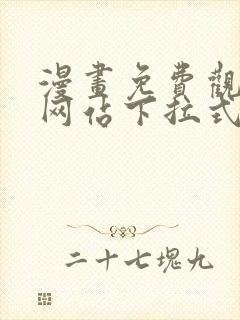 漫畫免費觀
网佔下拉式
二十七塊九